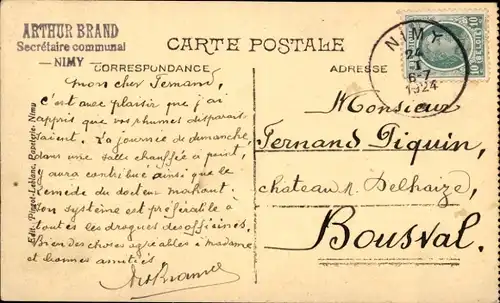 ARTHUR BRAND
Secrétaire communal
— NIMY —
CARTE POSTALE
CORRESPONDANCE
ADRESSE
NIMY
24
I
6-7
1924
Mon cher Fernand,
c'est avec plaisir que j'ai
appris que vos rhumes disparais-
saient. La journée de dimanche,
dans une salle chauffée à point,
y aura contribué ainsi que le
remède du docteur Mahaut.
Son système est préférable à
toutes les drogues des officines.
Bien des choses agréables à madame
et bonnes amitiés
Art Brand
Monsieur
Fernand Piquin,
château Delhaize,
Bousval.
Edit. Pinget-Leblanc, Papeterie, Nimy